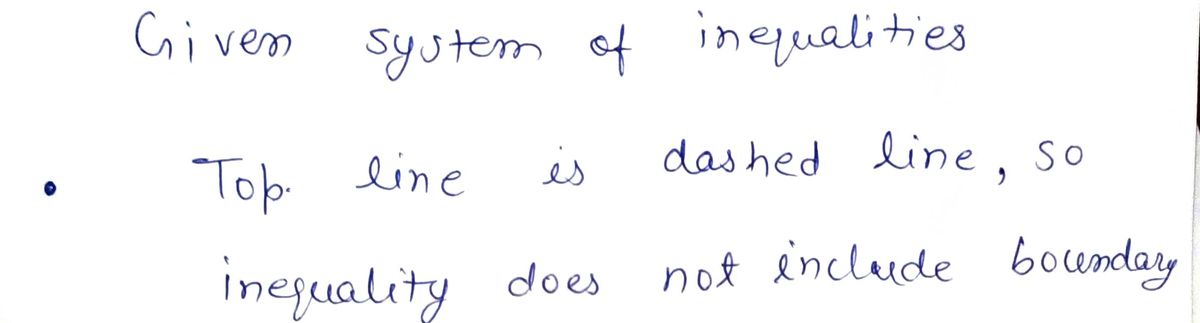 Given system of inequalities
• Top line is dashed line, so
inequality does not include boundary